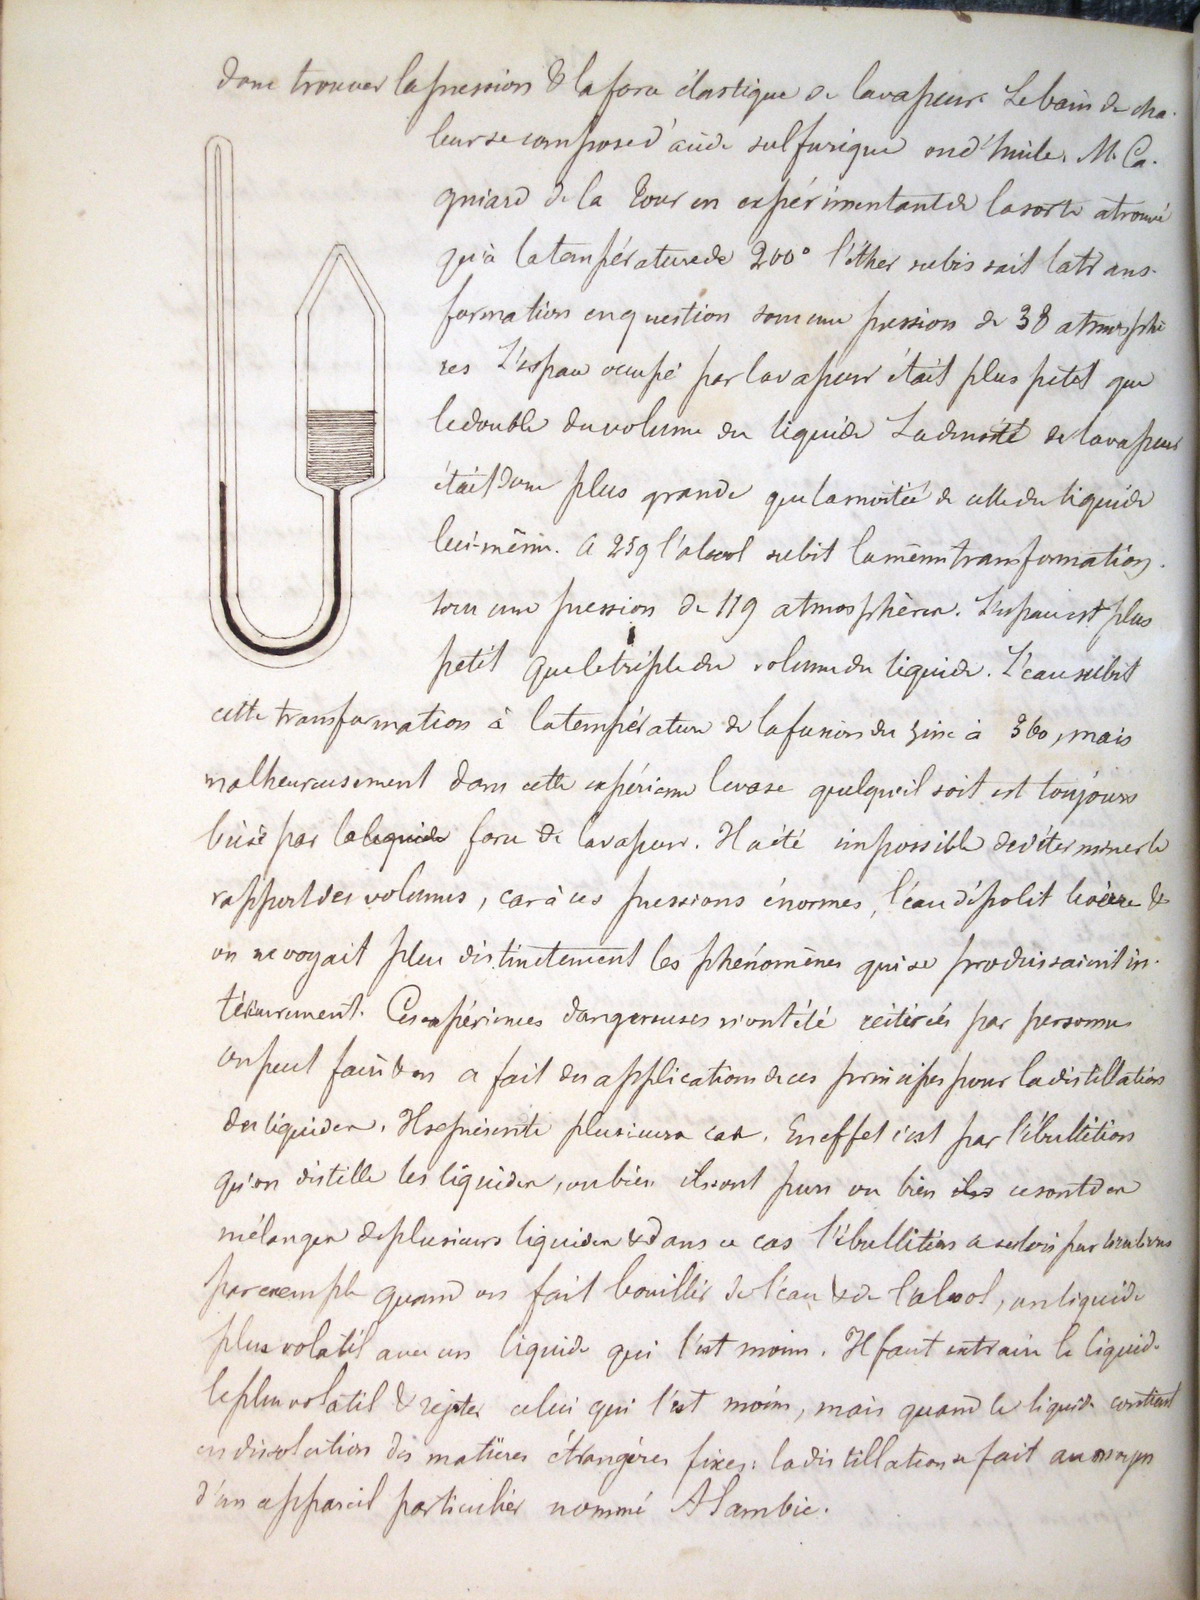 donc trouver la pression & la force élastique de la vapeur. Le bain de cha-
leur se compose d'acide sulfurique ou d'huile. M. Ca-
gniard de la Tour en expérimentant de la sorte a trouvé
qu'à la température de 200° l'éther subissait la trans-
formation en question sous une pression de 38 atmosphè
res L'espace occupé par la vapeur était plus petit que
le double du volume du liquide La densité de la vapeur
était donc plus grande que la moitié de celle du liquide
lui-même. A 259 l'alcool subit la même transformation.
sous une pression de 119 atmosphères. L'espace est plus
petit que le triple du volume du liquide. L'eau subit
cette transformation à la température de la fusion du zinc à 360, mais
malheureusement dans cette expérience le vase quelqu'il soit est toujours
brisé par la liquide force de la vapeur. Il a été impossible de déterminer le
rapport des volumes, car à ces pressions énormes, l'eau dépolit le verre &
on ne voyait plus distinctement les phénomènes qui se produisaient in-
térieurement. Ces expériences dangereuses n'ont été réitérées par personne
on peut faire & on a fait des applications de ces principes pour la distillation
des liquides. Il se présente plusieurs cas. En effet c'est par l'ébullition
qu'on distille les liquides, ou bien ils sont purs ou bien ils ce sont des
mélanges de plusieurs liquides & dans ce cas l'ébullition a
par exemple quand on fait bouillir de l'eau & de l'alcool, un liquide
plus volatil avec un liquide qui l'est moins. Il faut extraire le liquide
le plus volatil & rejeter celui qui l'est moins, mais quand le liquide contient
en dissolution des matières étrangères fixes: la distillation se fait au moyen
d'un appareil particulier nommé Alambic.